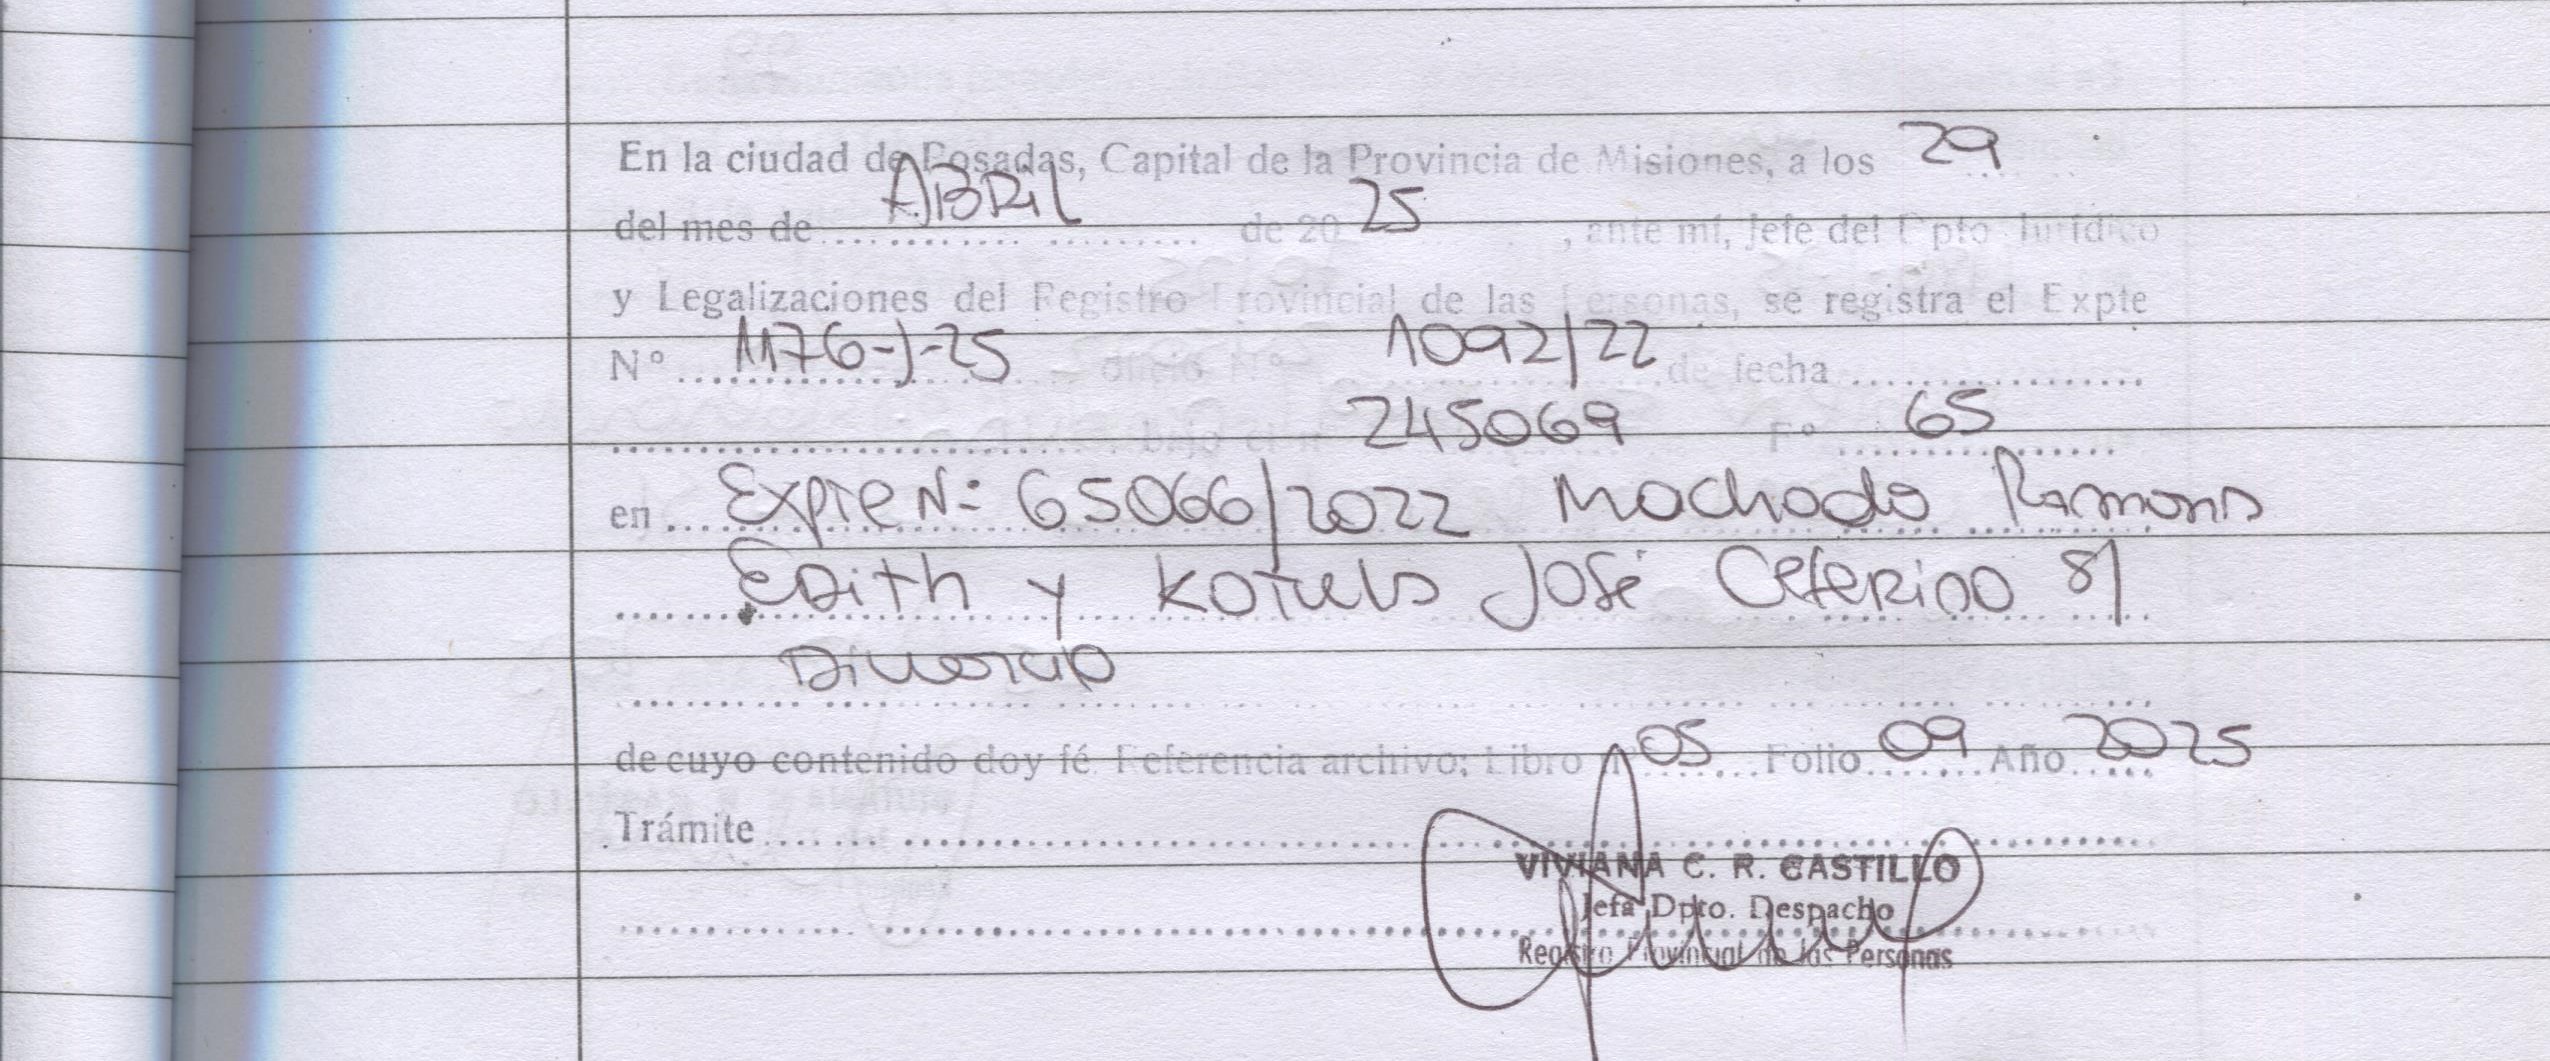 En la ciudad de Posadas, Capital de la Provincia de Misiones, a los 29
del mes de ABRIL de 20 25, ante mí, Jefe del Dpto Jurídico
y Legalizaciones del Registro Provincial de las Personas, se registra el Expte
Nº 1176-J-25 oficio Nº 1092/22 de fecha
bajo el nº 245069 Fº 65
en Expte N: 65066/2022 Machado Ramona
Edith y Kotula José Ceferino s/
Divorcio
de cuyo contenido doy fé. Referencia archivo; Libro nº 05 Folio 09 Año 2025
Trámite
VIVIANA C. R. CASTILLO
Jefa Dpto. Despacho
Registro Provincial de las Personas